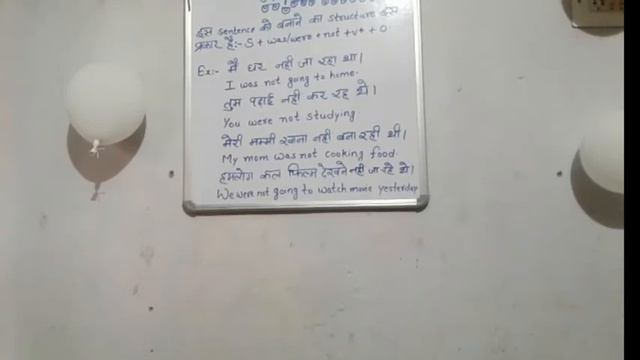 इस sentence को बनाने का structure इस
प्रकार है:- S + was/were + not + v⁴ + O
Ex:- मैं घर नहीं जा रहा था।
I was not going to home.
तुम पढ़ाई नहीं कर रहे थे।
You were not studying.
मेरी मम्मी खाना नहीं बना रही थी।
My mom was not cooking food.
हमलोग कल फिल्म देखने नहीं जा रहे थे।
We were not going to watch movie yesterday